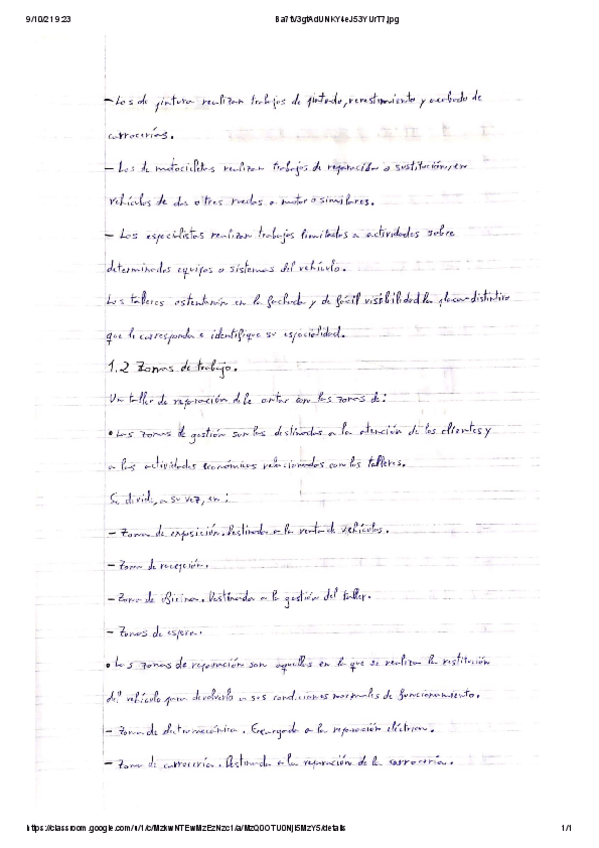 9/10/21 9:23
Ba7fV3gfAdUNKY4eJ53YUrT7.jpg
- Los de pintura realizan trabajos de pintado, revestimiento y acabado de
carrocerías.
- Los de motocicletas realizan trabajos de reparación o sustitución, en
vehículos de dos o tres ruedas a motor o similares.
- Los especialistas realizan trabajos limitados a actividades sobre
determinados equipos o sistemas del vehículo.
Los talleres ostentarán en la fachada y de fácil visibilidad la placa-distintivo
que le corresponda e identifique su especialidad.
1.2 Zonas de trabajo.
Un taller de reparación debe contar con las zonas de:
• Las zonas de gestión son las destinadas a la atención de los clientes y
a las actividades económicas relacionadas con los talleres.
Se divide, a su vez, en:
- Zona de exposición. Destinada a la venta de vehículos.
- Zona de recepción.
- Zona de oficina. Destinada a la gestión del taller.
- Zonas de espera.
• Las zonas de reparación son aquellas en la que se realizan la restitución
del vehículo para devolverlo a sus condiciones normales de funcionamiento.
- Zona de electromecánica. Encargada a la reparación eléctrica.
- Zona de carrocería. Destinada a la reparación de la carrocería.
1/1